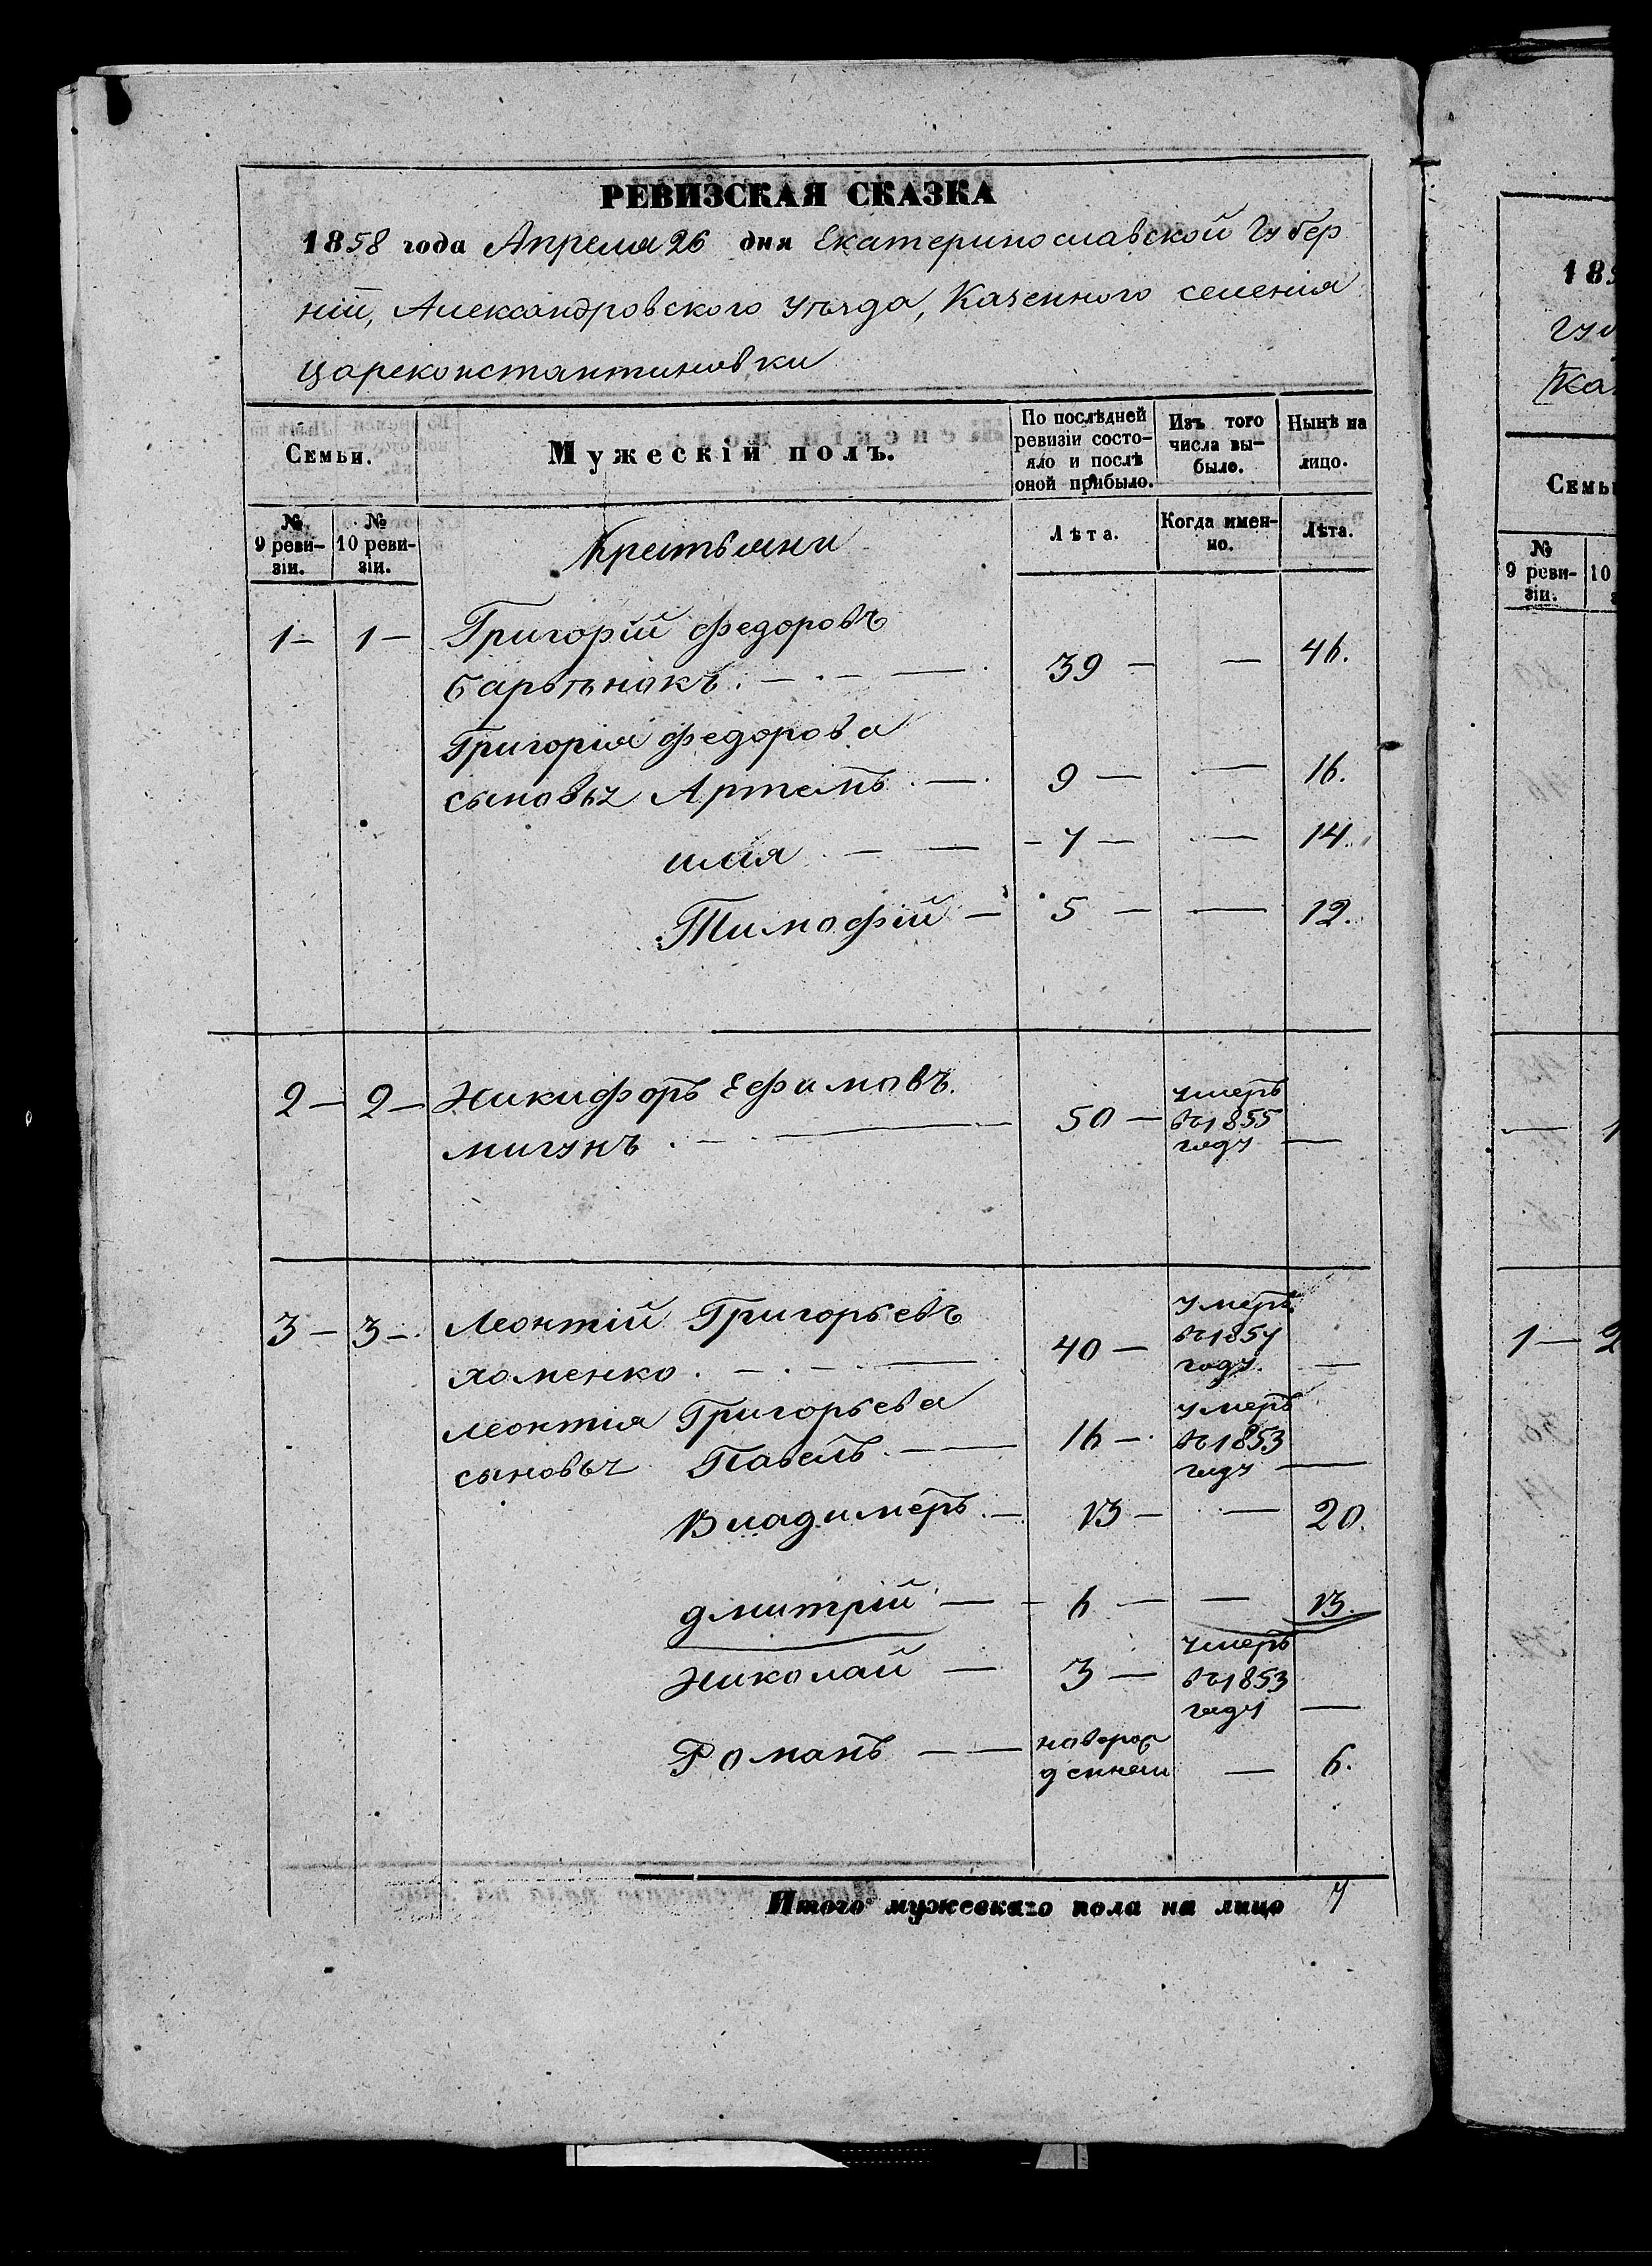 РЕВИЗСКАЯ СКАЗКА
1858 года Апреля 26 дня Екатеринославской Губер
ніи, Александровского уѣзда, Казенного селенія
Цареконстантиновки
Семьи.
Мужескій полъ.
По послѣдней ревизіи состо-яло и послѣ оной прибыло.
Изъ того числа вы-было.
Нынѣ на лицо.
№ 9 реви-зіи.
№ 10 реви-зіи.
Крестьяни
Лѣта.
Когда имен-но.
Лѣта.
1 – 1 – Григорій Федоровъ
39 – — 46.
Григорія Федорова
сыновья Артемъ — 9 — — 16.
илія — — 7 — — 14.
Тимофій — 5 — — 12.
2 – 2 – Никифоръ Ефимовъ
мигунъ — 50 — умеръ въ 1855 году —
3 – 3 – Леонтій Григорьевъ
хоменко — 40 — умеръ въ 1857 году —
леонтія Григорьева
сыновья Павелъ — 16 — умеръ въ 1853 году —
Владимеръ — 13 — — 20.
дмитрій — 6 — — 13.
Николай — 3 — умеръ въ 1853 году —
Романъ — — новорож денной — 6.
Итого мужескаго пола на лицо 7
185
Семьи
№ 9 реви-зіи.
10
— 1
1 — 2